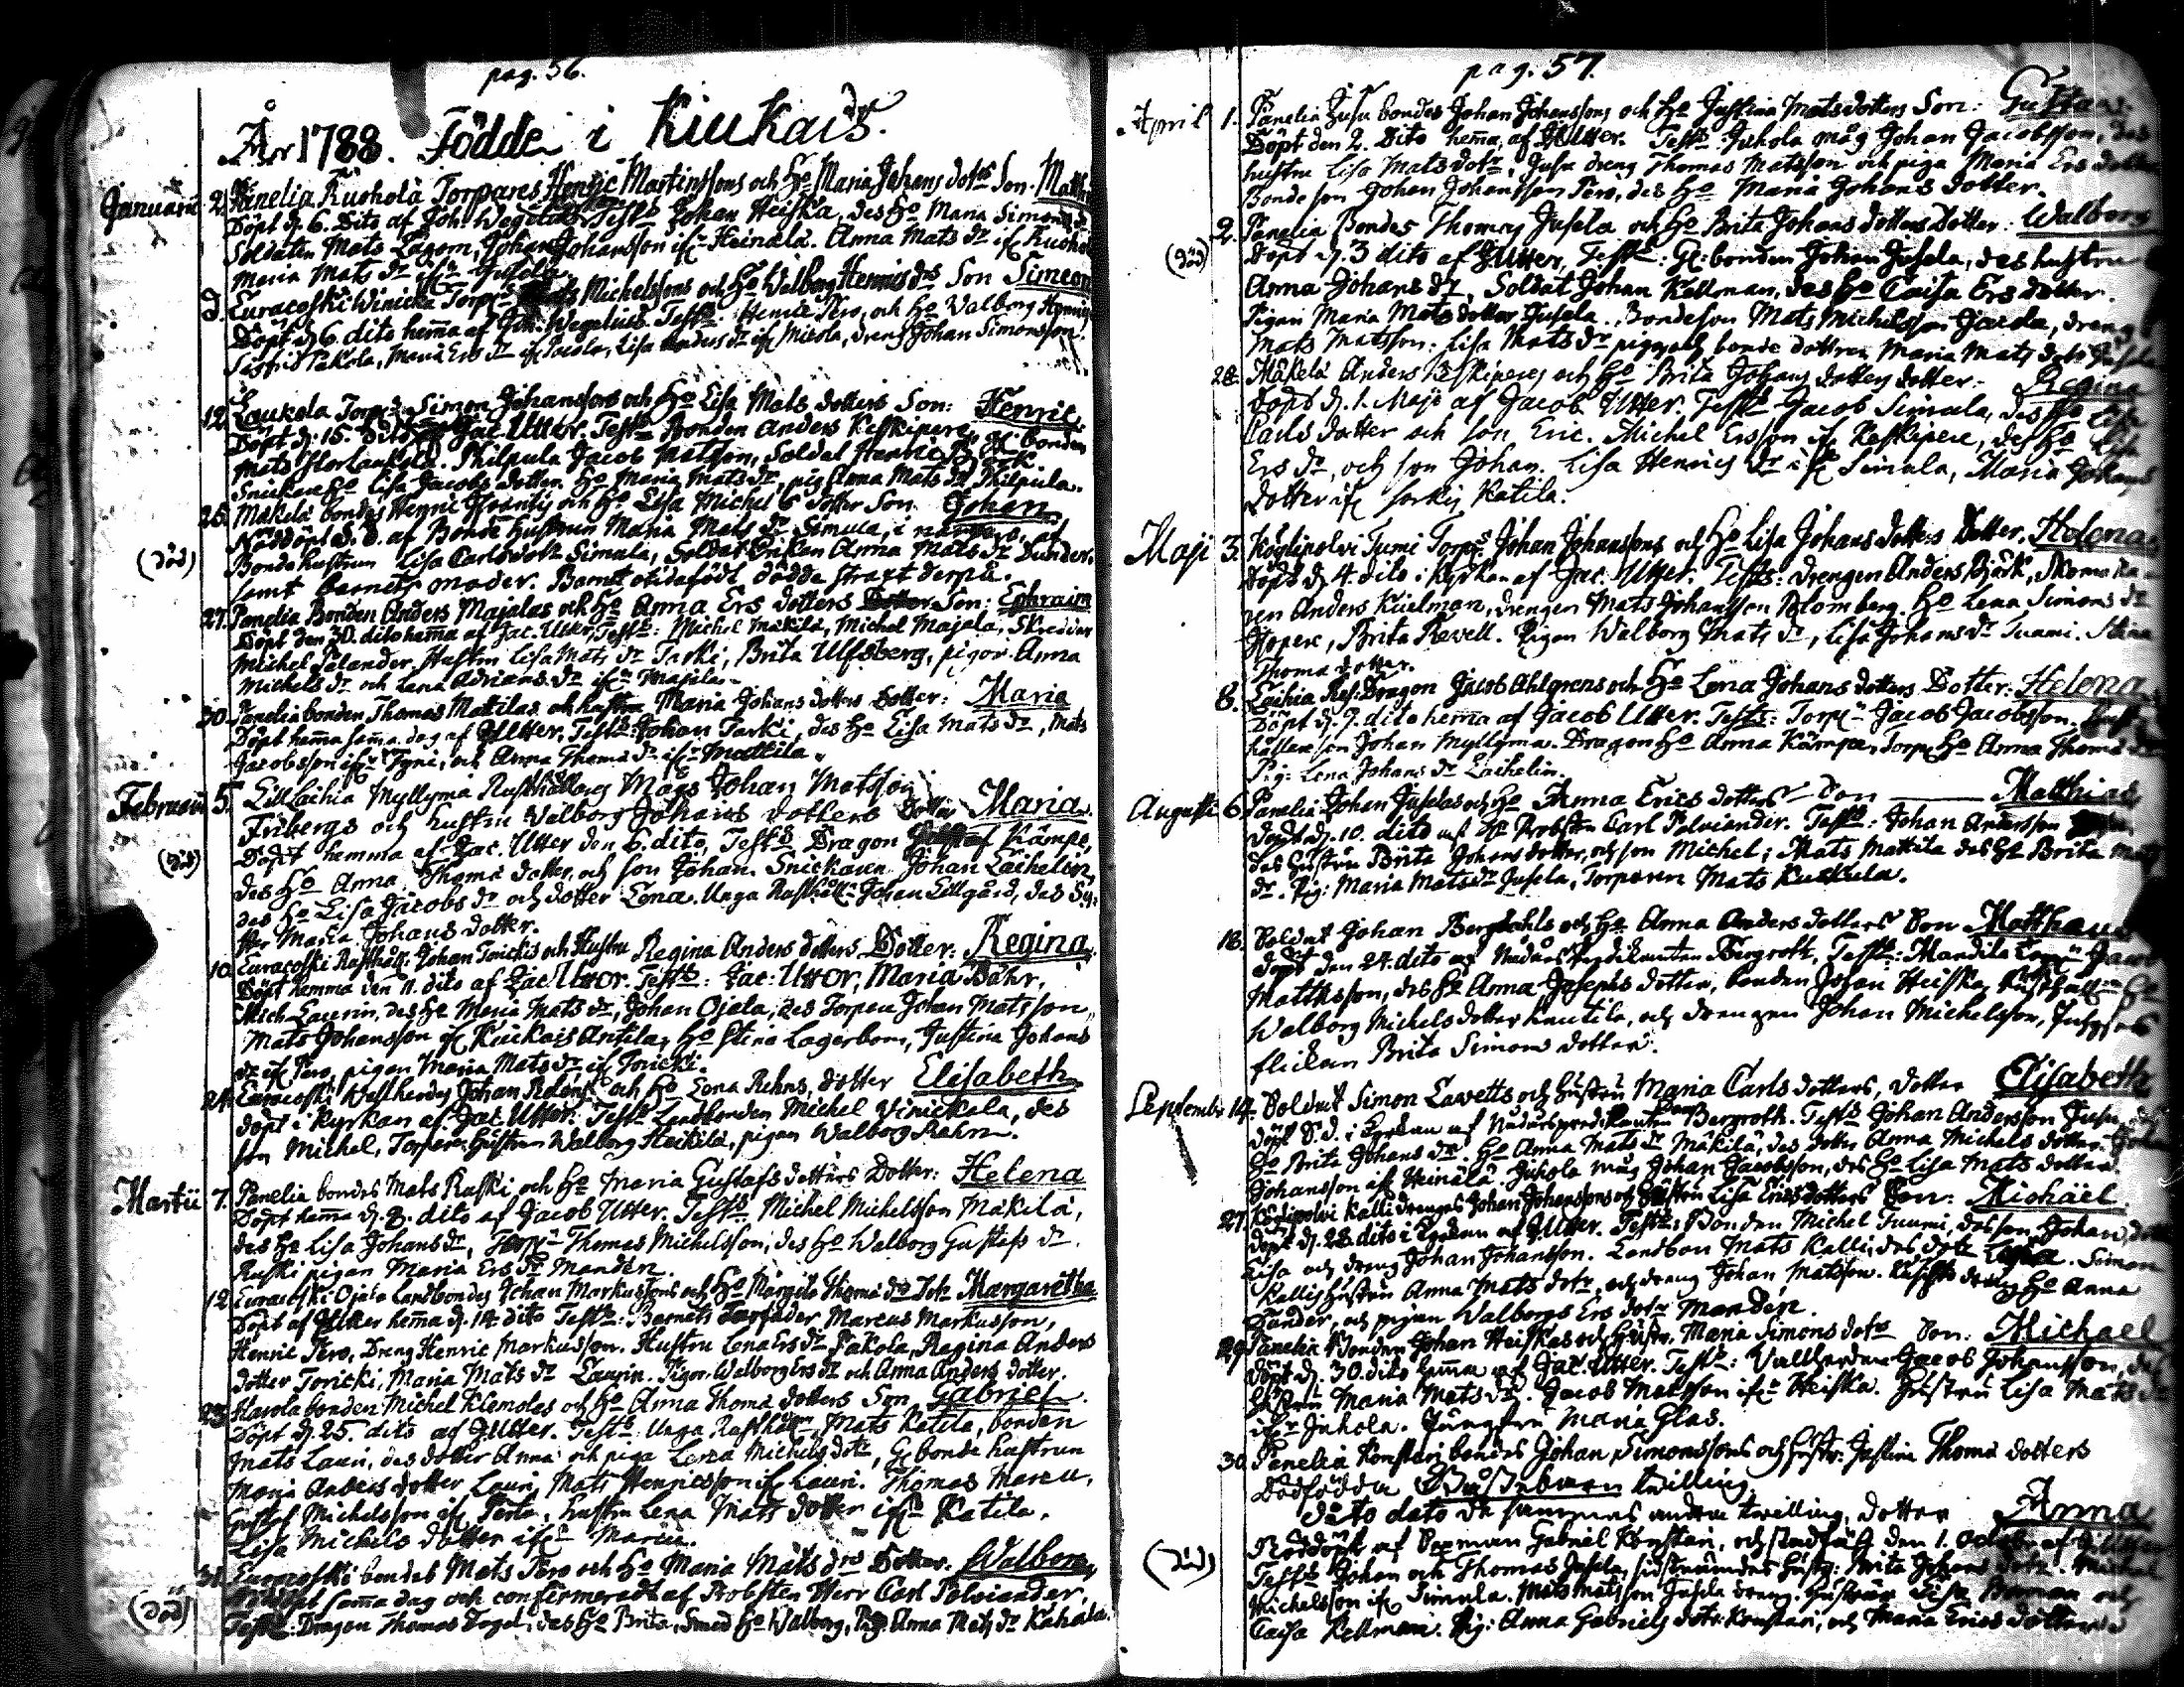 pag. 56.
År 1788. Födde i Kiukais.
Januarii 2. Panelia Kuohola Torpares Henric Martinssons och Ho Maria Johans dotrs Son. Matth
Döpt d. 6. Dito af Joh: Wegelius Testb Johan Heiska, des Ho Maria Simons
Soldaten Mats Lagom, Johan Johansson ifr Heinälä. Anna Mats dr ifr Kuoho
Maria Mats dr ifr Jusela
d. Euracoski Winicka Torprs Mats Michelssons och Ho Walborg Henrics drs Son Simeon
Döpt d. 6 dito hemma af Joh. Wegelius. Testb: Henric Pero, och Ho Walborg Henrics
Pakola, Maria Ers dr ifr Pacola, Lisa Anders dr ifr Micola, dreng Johan Simonsson
12. Laukola Torprs Simon Johanssons och Ho Lisa Mats dotters Son: Henric
Döpt d. 15. dito Jac. Utter. Testb Bonden Anders Keskipere, Gl. bonden
Mats Storlaukola. Philpula Jacob Matsson, Soldat Henric
Snickare Ho Lisa Jacobs dotter Ho Maria Mats dr, pig Anna Mats dr Philpula.
26. Mäkelä bondes Henric Frantz och Ho Lisa Michels dotter Son Johan
Nöddöpt S. d. af Bonde hustrun Maria Mats dr Simula, i närvaro af
(död) Bonde hustrun Lisa Carls dotr Simula, Soldat Enkan Anna Mats dr Sunder,
samt barnets moder. Barnet otidafödt, dödde straxt derpå.
27. Panelia Bonden Anders Majalas och Ho Anna Ers dotters Son: Ephraim
Döpt den 30. dito hemma af Jac. Utter, Testb: Michel Mäkilä, Michel Majala, Skreddar
Michel Palander, Hustru Lisa Mats dr Taski, Brita Ulfsberg, pigor Anna
Michels dr och Lena Adrians dr ifr Majala.
30. Panelia bonden Thomas Mattilas och hustru Maria Johans dotters Dotter: Maria
Döpt hemma samma dag af JUtter, Testb: Johan Tarki, des Ho Lisa Mats dr, Mats
Jacobsson ifr Tyni, och Anna Thomæ dr ifr Mattila.
Februarii 5. Lill Laihia Myllymä Rusthållares Mågs Johan Matsson
Fribergs och hustru Walborg Johans dotters Dotter Maria
Döpt hemma af Jac. Utter den 6. dito, Testb Dragon Kämpe,
(död) des Ho Anna Thomæ dotter, och son Johan. Snickaren Johan Laihelin,
des Ho Lisa Jacobs dr och dotter Lena. Unga Rusthåll: Johan Lillgård, des Sy-
ster Maria Johans dotter.
10. Euracoski Rusthåll: Johan Torickis och Hustru Regina Anders dotters Dotter: Regina
Döpt hemma den 11. dito af Jac Utter. Testb: Jac: Utter, Maria Bähr,
Mich Laurin, des Ho Maria Mats dr, Johan Ojala, des Torpare Johan Matsson,
Mats Johansson ifr Kiukais Antila, Ho Stina Lagerbom, Justina Johans
dr ifr Pero, pigan Maria Mats dr ifr Toricki.
24. Euracoski Wallherdes Johan Rehns och Ho Lena Rehns, dotter Elisabeth
döpt i Kyrkan af Jac. Utter. Testb Landbonden Michel Winickala, des
son Michel, Torpare hustrun Walborg Heickilä, pigan Walborg Rehn.
Martii 7. Panelia bondes Mats Raski och Ho Maria Gustafs dotters Dotter: Helena
Döpt hemma d. 8. dito af Jacob Utter. Testb Michel Michelsson Mäkilä,
des Ho Lisa Johans dr, Torpr Thomas Michelsson, des Ho Walborg Gustafs dr.
Raski pigan Maria Ers dr Mandén.
12. Euracoski Ojala Landbondes Johan Markussons och Ho Margita Thomæ drs Dotr Margaretha
Döpt af JUtter hemma d. 14 dito Testb: Barnets Farfader Marcus Markusson,
Henric Pero, Dreng Henric Markusson. Hustru Lena Ers dr Pakola, Regina Anders
dotter Toricki, Maria Mats dr Laurin. Pigor Walborg Ers dr och Anna Anders dotter.
23. Harola bonden Michel Klemolas och Ho Anna Thomæ dotters Son Gabriel
Döpt d. 25. dito af JUtter. Testb: Unga Rusthålln Mats Katila, bonden
Mats Lauri, des dotter Anna och piga Lena Michels dotr, Gl bonde hustrun
Maria Anders dotter Lauri, Mats Henricsson ifr Lauri. Thomas Marcu,
Gustaf Michelsson ifr Perta, hustru Lena Mats dotter ifr Katila,
Lisa Michels dotter ifr Marcu.
31. Euracoski bondes Mats Pero och Ho Maria Mats drs Dotter. Walborg
Nöddöpt samma dag och confirmeradt af Probsten Herr Carl Polviander,
(död) Testb: Dragon Thomas Dagel, des Ho Brita, Smed Ho Walborg, Pig. Anna Mats dr Kahala.
pag. 57.
April 1. Panelia Jusu bondes Johan Johanssons och Ho Justina Matsdotters Son: Gustaav
Döpt den 2. Dito hemma af JUtter. Testb: Juhola måg Johan Jacobsson, des
hustru Lisa Mats dotr, Jusu dreng Thomas Matsson och piga Maria Ers dotter
Bonde son Johan Johansson Pero, des Ho Maria Johans dotter.
2. Panelia Bondes Thomas Jusela och Ho Brita Johans dotters Dotter: Walborg
(död) Döpt d. 3 dito af JUtter, Testb: Gl: bonden Johan Jusela, des hustru
Anna Johans dr, Soldat Johan Kellman, des Ho Caisa Ers dotter.
Pigan Maria Mats dotter Jusela. Bondeson Mats Michelsson Jacola, dreng
Mats Matsson. Lisa Mats dr piga och bonde dottren Maria Mats dotr Jusela
28. Mäkelä Anders Keskiperes och Ho Brita Johans dotters dotter. Regina
Döpt d. 1. Maji af Jacob Utter. Testb Jacob Simula, des Ho Lisa
Carls dotter och son Eric. Michel Ersson ifr Keskipere, des Ho Lisa
Ers dr, och son Johan. Lisa Henrics dr ifr Simula, Maria Johans
dotter ifr Katila.
Maji 3. Köylipolvi Tumi Torprs Johan Johanssons och Ho Lisa Johans dotters Dotter. Helena
Döpt d. 4. dito i Kyrkan af Jac. Utter. Testb: drengen Anders Björk, Skomaka-
ren Anders Kuelman, drengen Mats Johansson Blomberg. Ho Lena Simons dr
, Brita Revell. Pigan Walborg Mats dr, Lisa Johans dr Tuami. Stina
Thomæ dotter.
8. Laihia Res: Dragon Jacob Ahlgrens och Ho Lena Johans dotters Dotter: Helena
Döpt d. 9. dito hemma af Jacob Utter. Testb: Torpr Jacob Jacobsson.
Johan Myllymä. Dragon Ho Anna Kämpe, Torp Ho Anna Thomæ
Pig: Lena Johans dr Laihelin.
Augusti 6. Panelia Johan Juselas och Ho Anna Erics dotters Son Matthias
Döpt d. 10. dito af Hr Probsten Carl Polviander. Testb: Johan Andersson
des hustru Brita Johans dotter, och son Michel; Mats Mattila des Ho Brita Mats
dr. Pig: Maria Mats dr Jusela, Torparen Mats Kuskula.
18. Soldat Johan Bergdahls och Ho Anna Anders dotters Son Matthæus
döpt den 24. dito af Nådårs Predikanten Bergroth, Testb: Mandila Jacob
Matthsson, des Ho Anna Josephs dotter, bonden Johan Heiska, Rusthåll Ho
Walborg Michels dotter Knutila, och drengen Johan Michelsson,
flickan Brita Simons dotter.
Septembr 14. Soldat Simon Lawetts och hustru Maria Carls dotters, dotter Elisabeth
döpt S. d. i Kyrkan af Nådårspredikanten Bergroth. Testb Johan Andersson Jusu, des
Ho Brita Johans dr. Ho Anna Mats dr Mäkilä, des dotter Anna Michels dotter. Johan
Johansson ifr Heinälä. Juhola måg Johan Jacobsson, des Ho Lisa Mats dotter.
27. Köylipolvi Kalli drenges Johan Johanssons och Hustru Lisa Ersdotters Son: Michael
döpt d. 28. dito i Kyrkan af JUtter. Testb: Bonden Michel Tuumi, des son Johan, dotter
Lisa och dreng Johan Johansson. Landbon Mats Kalli, des dotr Lisa. Simon
Kallis hustru Anna Mats dotr, och dreng Johan Matsson. Ho Anna
Sander, och pigan Walborgs Ers dotr Mandén.
29. Panelia Bonden Johan Heiskas och hustr. Maria Simons dotrs Son: Michael
döpt d. 30. dito hemma af Jac Utter. Testb: Vallherden Jacob Johansson, des
hustru Maria Mats dr. Jacob Matsson ifr Heiska. Hustru Lisa Mats dr
ifr Juhola. Jungfru Maria Glas.
30. Panelia Konstari bondes Johan Simonssons och hustr: Justina Thomæ dotters
Dödfödda Gåssebarn twilling.
Dito dato de sammas andra twilling, dotter Anna
Nöddöpt af Gabriel Konstari, och stadfäst den 1. octobr af JUtter
(död) Testb Johan och Thomas Jusela, sistnämdes hustr: Brita Johans dotr. Michel
Michelsson ifr Simula. Mats Matsson Jusela dreng. Hustrun Lisa och
Caisa Kellman. Pig: Anna Gabriels dotr Konstari, och Maria Erics dotter